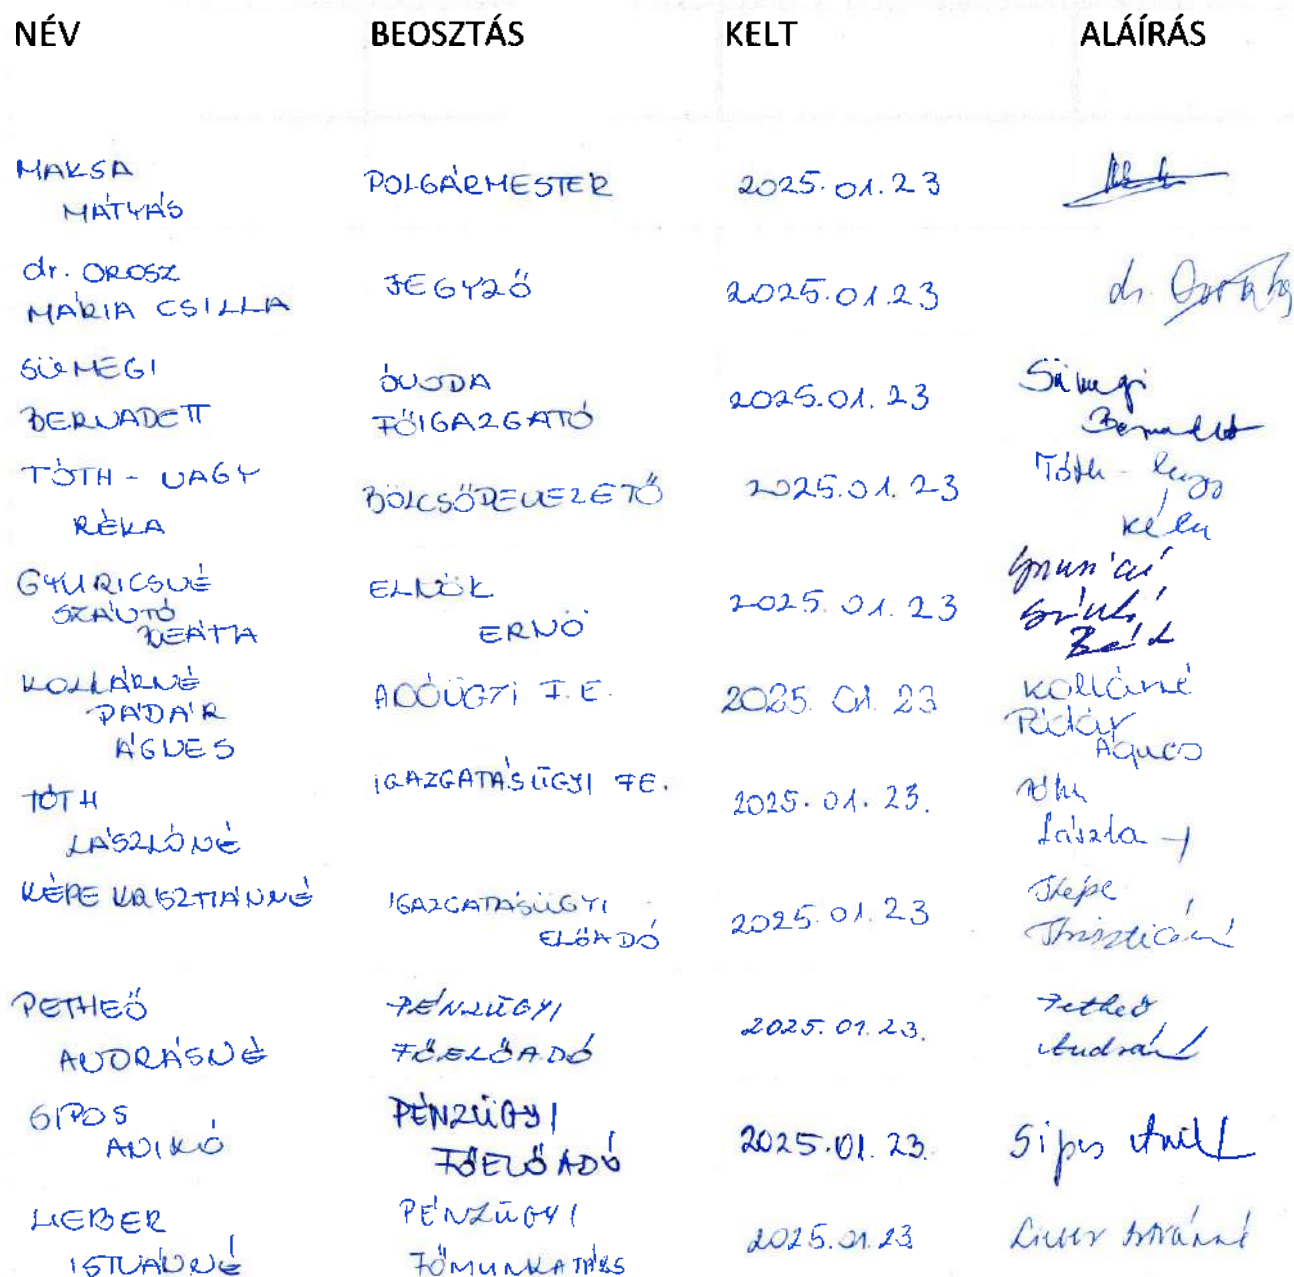 NÉV BEOSZTÁS KELT ALÁÍRÁS
MAKSA
MÁTYÁS POLGÁRMESTER 2025.01.23
dr. OROSZ
MÁRIA CSILLA JEGYZŐ 2025.01.23 dr.
SÜMEGI
BERNADETT
ÓVODA
FŐIGAZGATÓ 2025.01.23
Sümegi
Bernadett
TÓTH - NAGY
RÉKA
BÖLCSŐDEVEZETŐ 2025.01.23
Tóth - Nagy
Réka
GYURICSNÉ
SZÁNTÓ
BEÁTA
ELNÖK
ERNÖ
2025.01.23
KOLLÁRNÉ
PÁDÁR
ÁGNES
ADÓÜGYI F.E. 2025.01.23
Kollárné
Pádár
Ágnes
TÓTH
LÁSZLÓNÉ
IGAZGATÁSÜGYI FE. 2025.01.23.
Tóth
KÉPE KRISZTIÁNNÉ
IGAZGATÁSÜGYI
ELŐADÓ
2025.01.23
PETHEŐ
ANDRÁSNÉ
PÉNZÜGYI
FŐELŐADÓ
2025.01.23.
Petheő
SIPOS
ANIKÓ
PÉNZÜGYI
FŐELŐADÓ
2025.01.23.
Sipos Anikó
LIEBER
ISTVÁNNÉ
PÉNZÜGYI
FŐMUNKATÁRS
2025.01.23
Lieber Istvánné